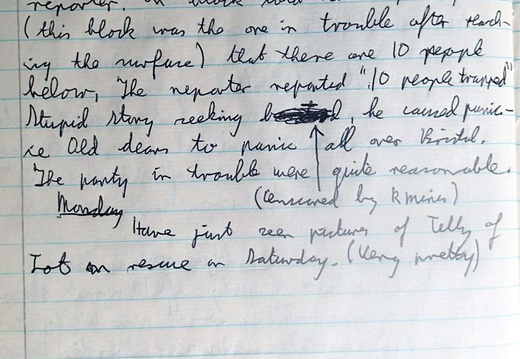 reporter. 
(this block was the one in trouble after reach-
ing the surface) that there are 10 people
below, The reporter reported "10 people trapped"
Stupid story seeking, he caused panic -
ie Old dears to panic all over Bristol.
The party in trouble were quite reasonable.
(Censured by R Mines)
Monday
Have just seen pictures of Telly of
Lot on rescue on Saturday. (Very pretty)